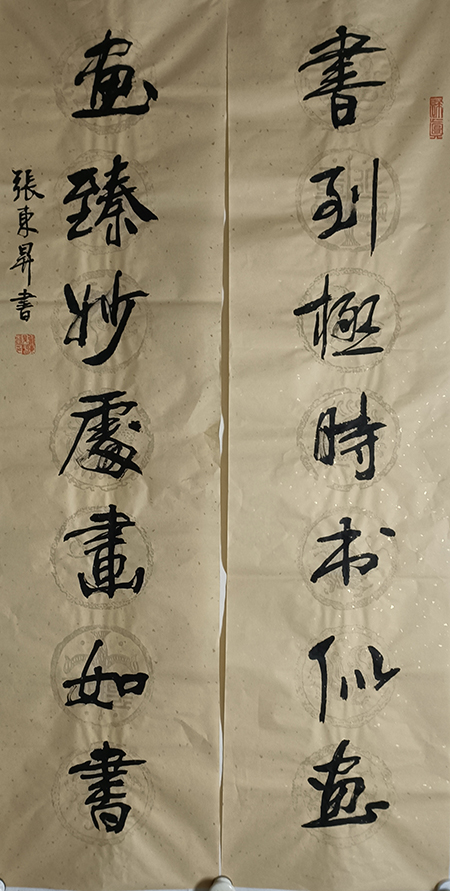 書到極時书似畫
畫臻妙處畫如書
張東昇書